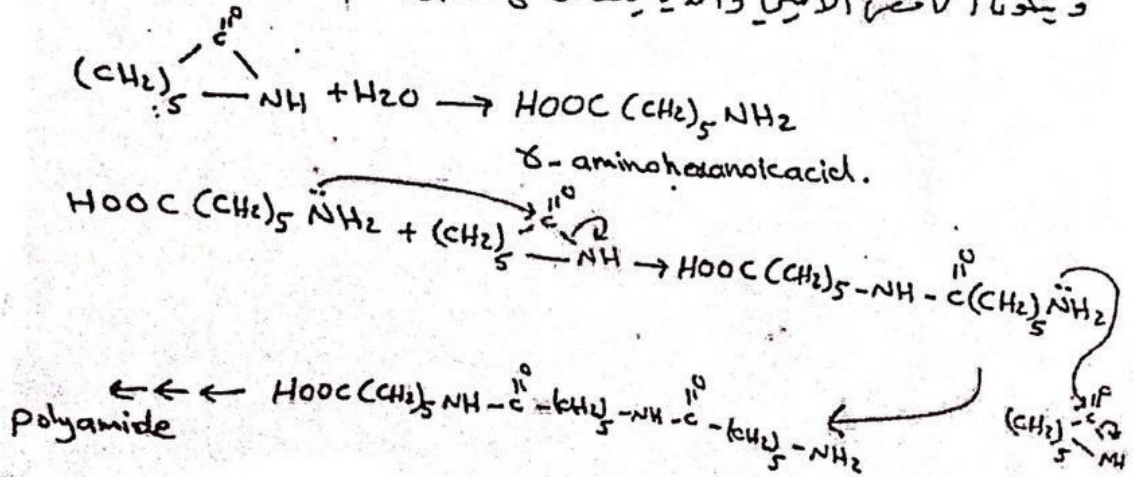 O
C
(CH2)5 — NH + H2O → HOOC (CH2)5 NH2
γ- aminohexanoicacid.
HOOC (CH2)5 N̈H2 + (CH2)5 — C=O NH → HOOC (CH2)5 -NH - C=O (CH2)5 N̈H2
←←← HOOC (CH2)5 NH - C=O -(CH2)5 -NH - C=O -(CH2)5 - NH2
(CH2)5 C=O NH
polyamide